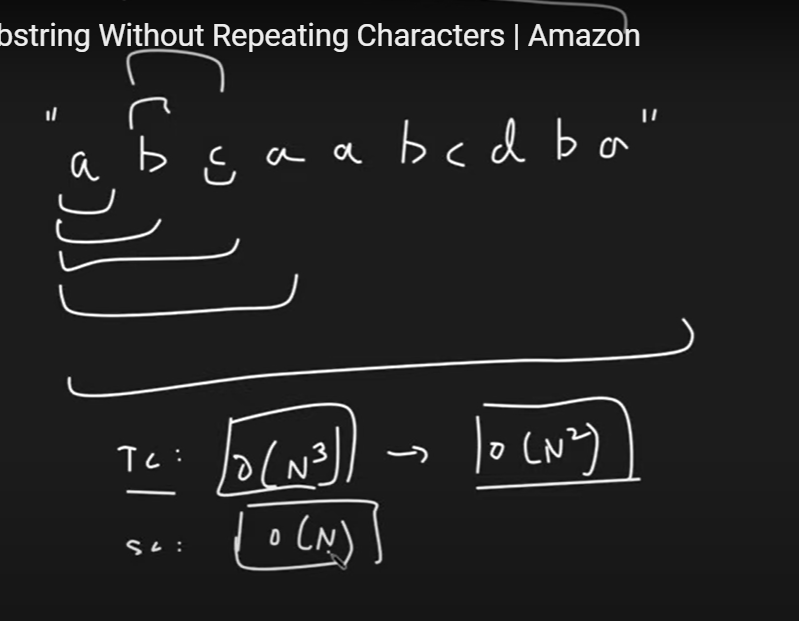 bstring Without Repeating Characters | Amazon
"a b c a a b c d b a"
TC: O(N³) → O(N²)
SC: O(N)